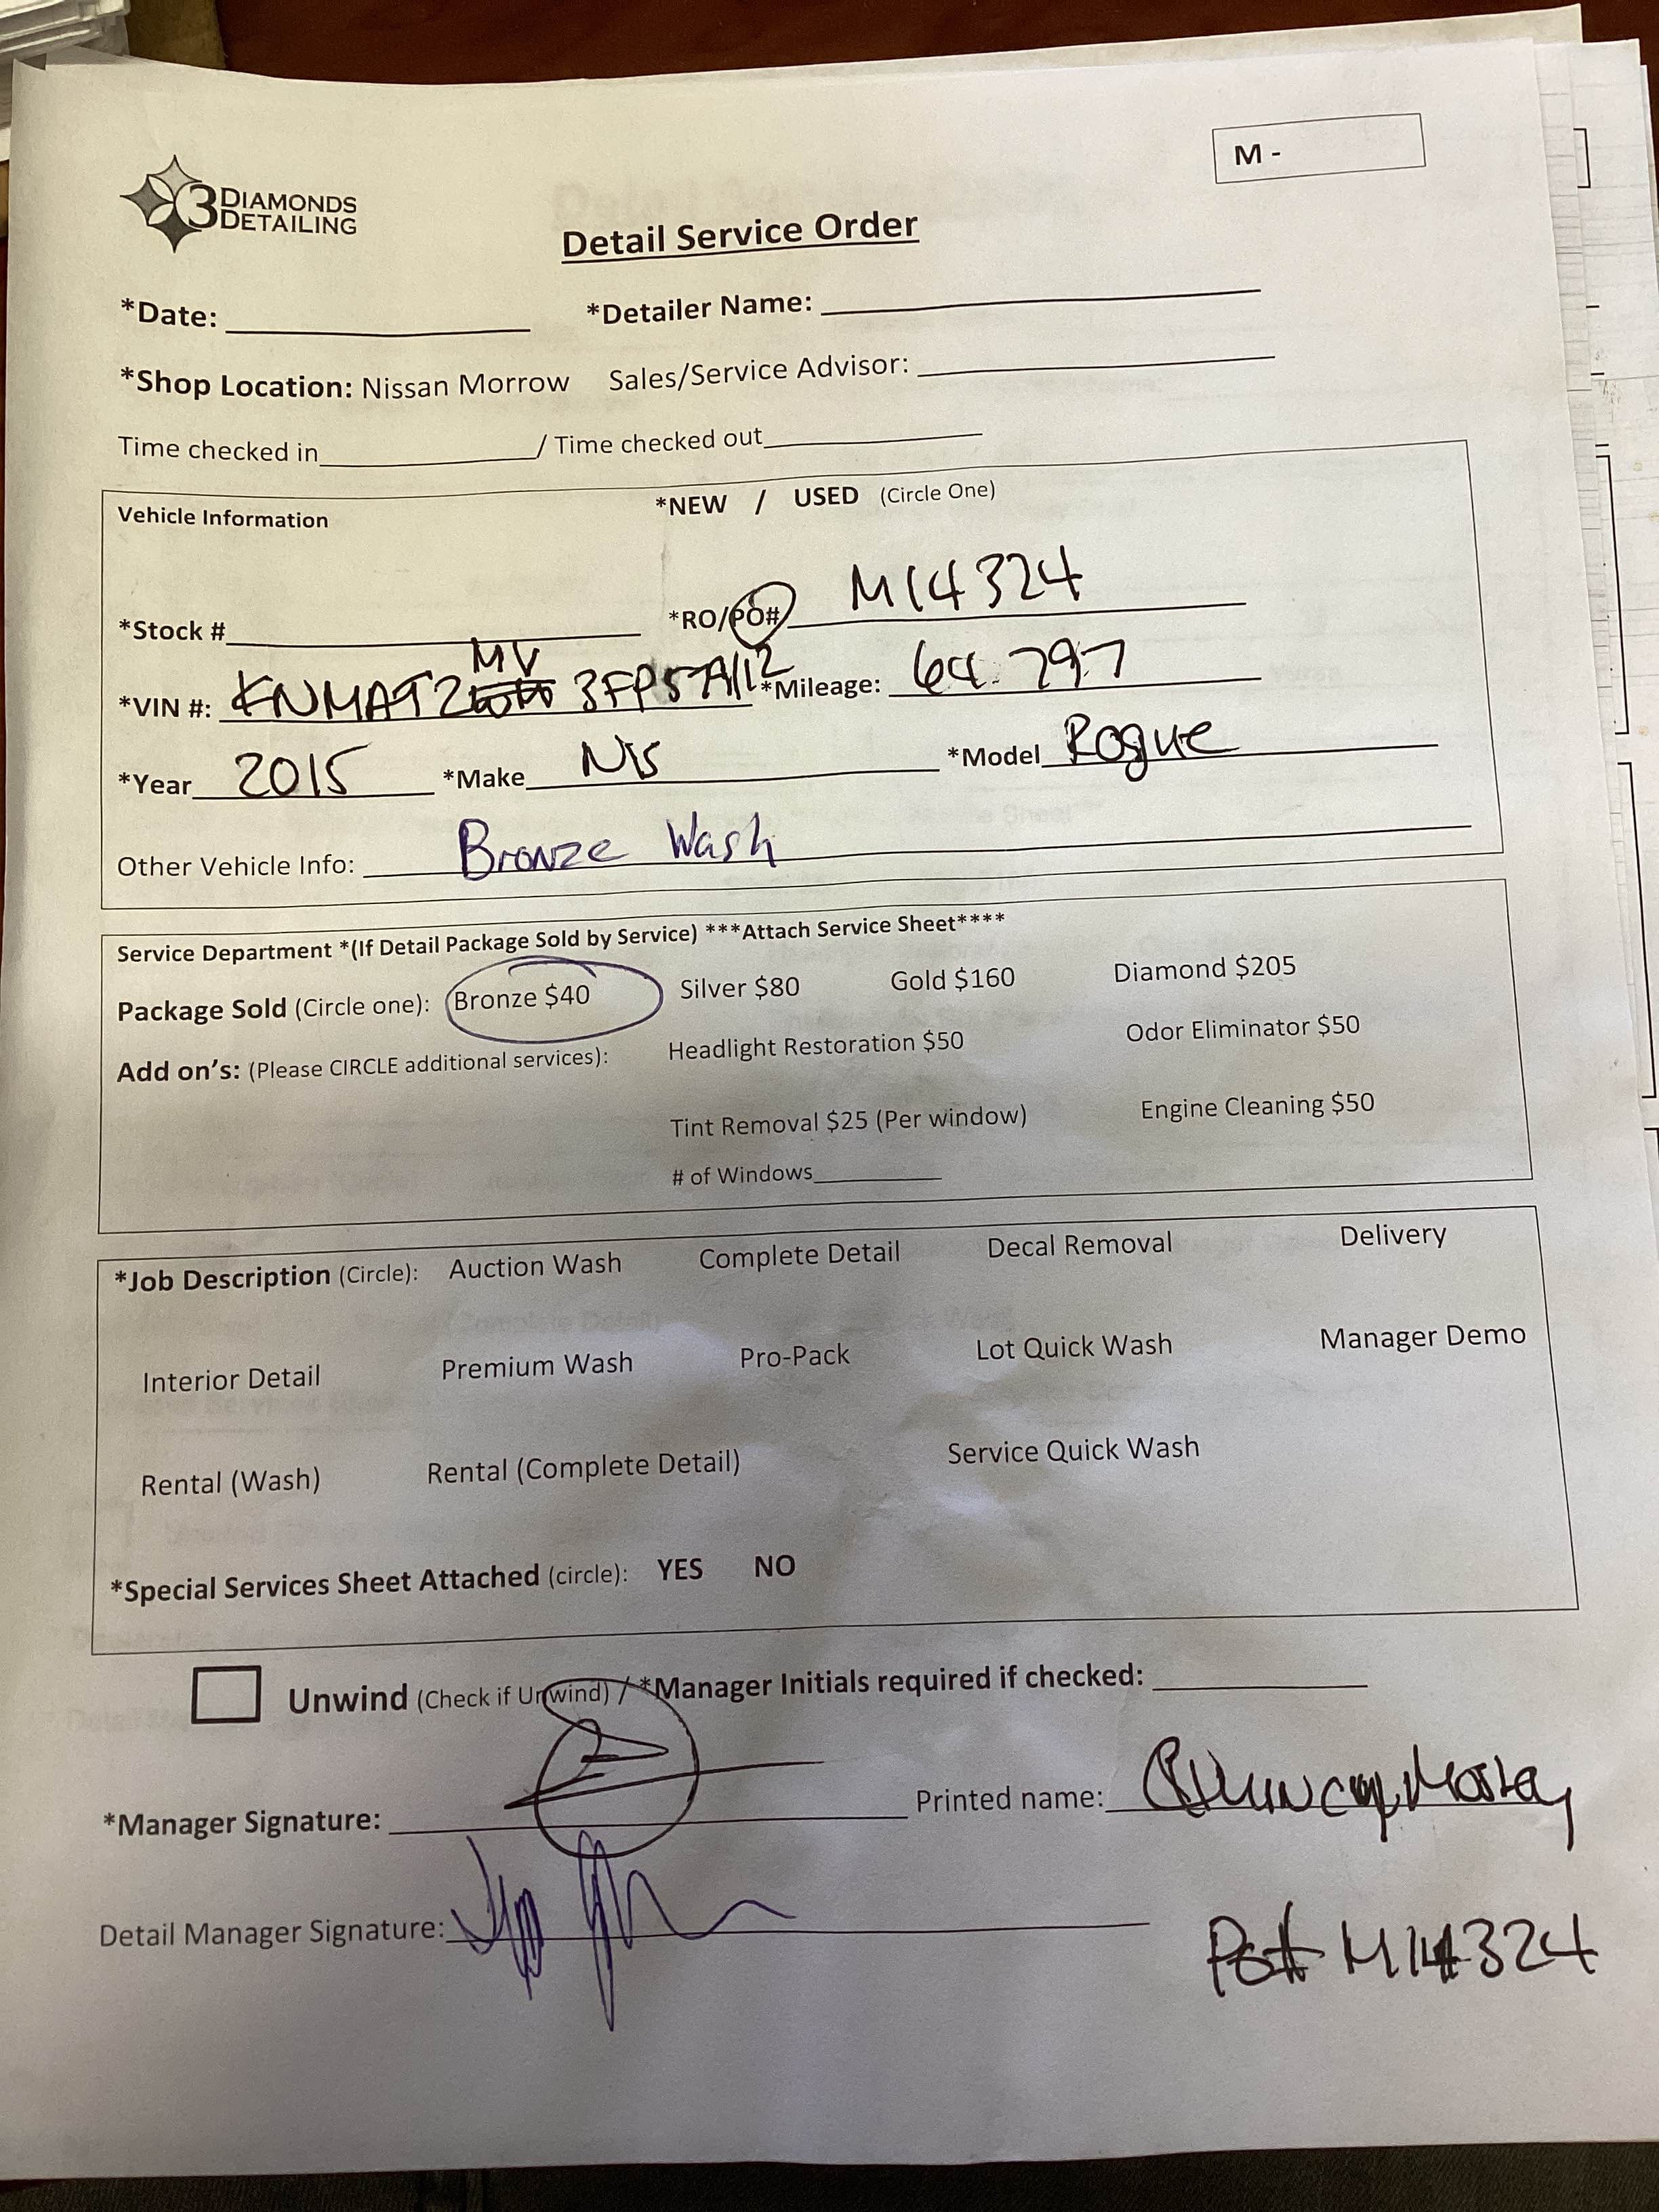 3 DIAMONDS DETAILING
M -
Detail Service Order
*Date: *Detailer Name:
*Shop Location: Nissan Morrow Sales/Service Advisor:
Time checked in / Time checked out
Vehicle Information *NEW / USED (Circle One)
*Stock # *RO/PO# M14324
MV
*VIN #: KNMAT2 3FP57A112 *Mileage: 64.797
*Year 2015 *Make NIS *Model Rogue
Other Vehicle Info: Bronze Wash
Service Department *(If Detail Package Sold by Service) ***Attach Service Sheet****
Package Sold (Circle one): Bronze $40 Silver $80 Gold $160 Diamond $205
Add on's: (Please CIRCLE additional services): Headlight Restoration $50 Odor Eliminator $50
Tint Removal $25 (Per window) Engine Cleaning $50
# of Windows
*Job Description (Circle): Auction Wash Complete Detail Decal Removal Delivery
Interior Detail Premium Wash Pro-Pack Lot Quick Wash Manager Demo
Rental (Wash) Rental (Complete Detail) Service Quick Wash
*Special Services Sheet Attached (circle): YES NO
Unwind (Check if Unwind) / *Manager Initials required if checked:
*Manager Signature: Printed name:
Detail Manager Signature:
Po# M14324